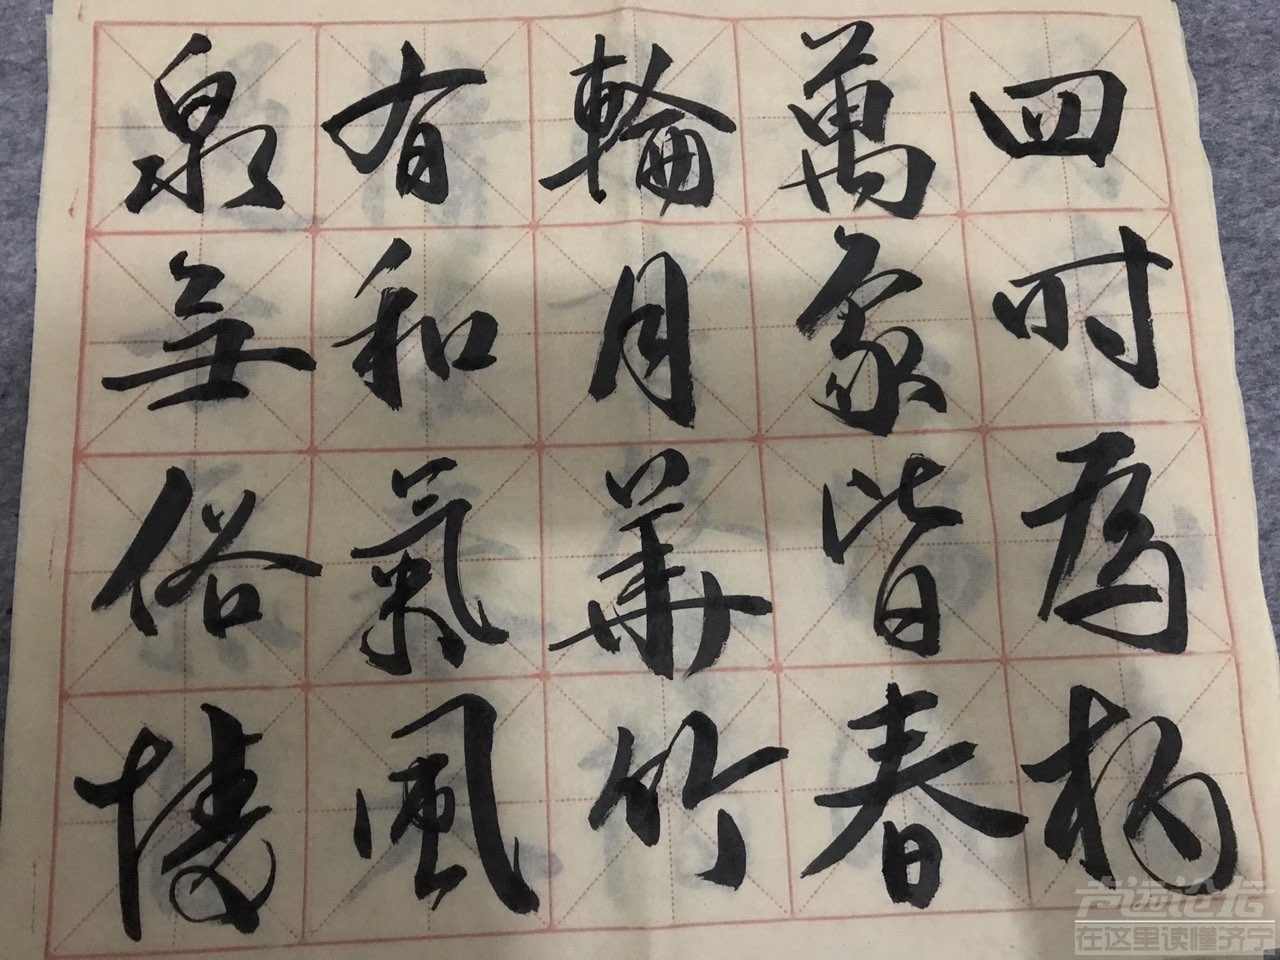 四时為柄
萬象皆春
輪月華竹
有和氣風
泉無俗情
声远论坛
在这里读懂济宁